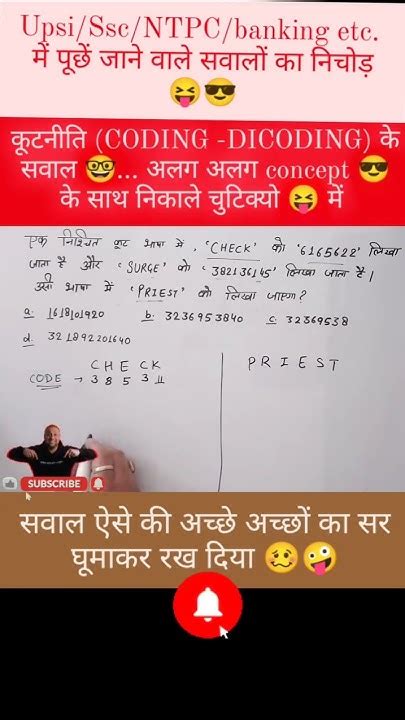 Upsi/Ssc/NTPC/banking etc.
में पूछें जाने वाले सवालों का निचोड़
😝😎
कूटनीति (CODING -DICODING) के
सवाल 🤓... अलग अलग concept 😎
के साथ निकाले चुटिक्यो 😝 में
एक निश्चित कूट भाषा में, 'CHECK' को '6165622' लिखा
जाता है और 'SURGE' को '382136145' लिखा जाता है।
उसी भाषा में 'PRIEST' को लिखा जाएगा?
a. 1618101920 b. 3236953840 c. 32369538
d. 321892201640
CHECK
CODE → 3 8 5 3 11
PRIEST
SUBSCRIBE
सवाल ऐसे की अच्छे अच्छों का सर
घूमाकर रख दिया 🥴🤪